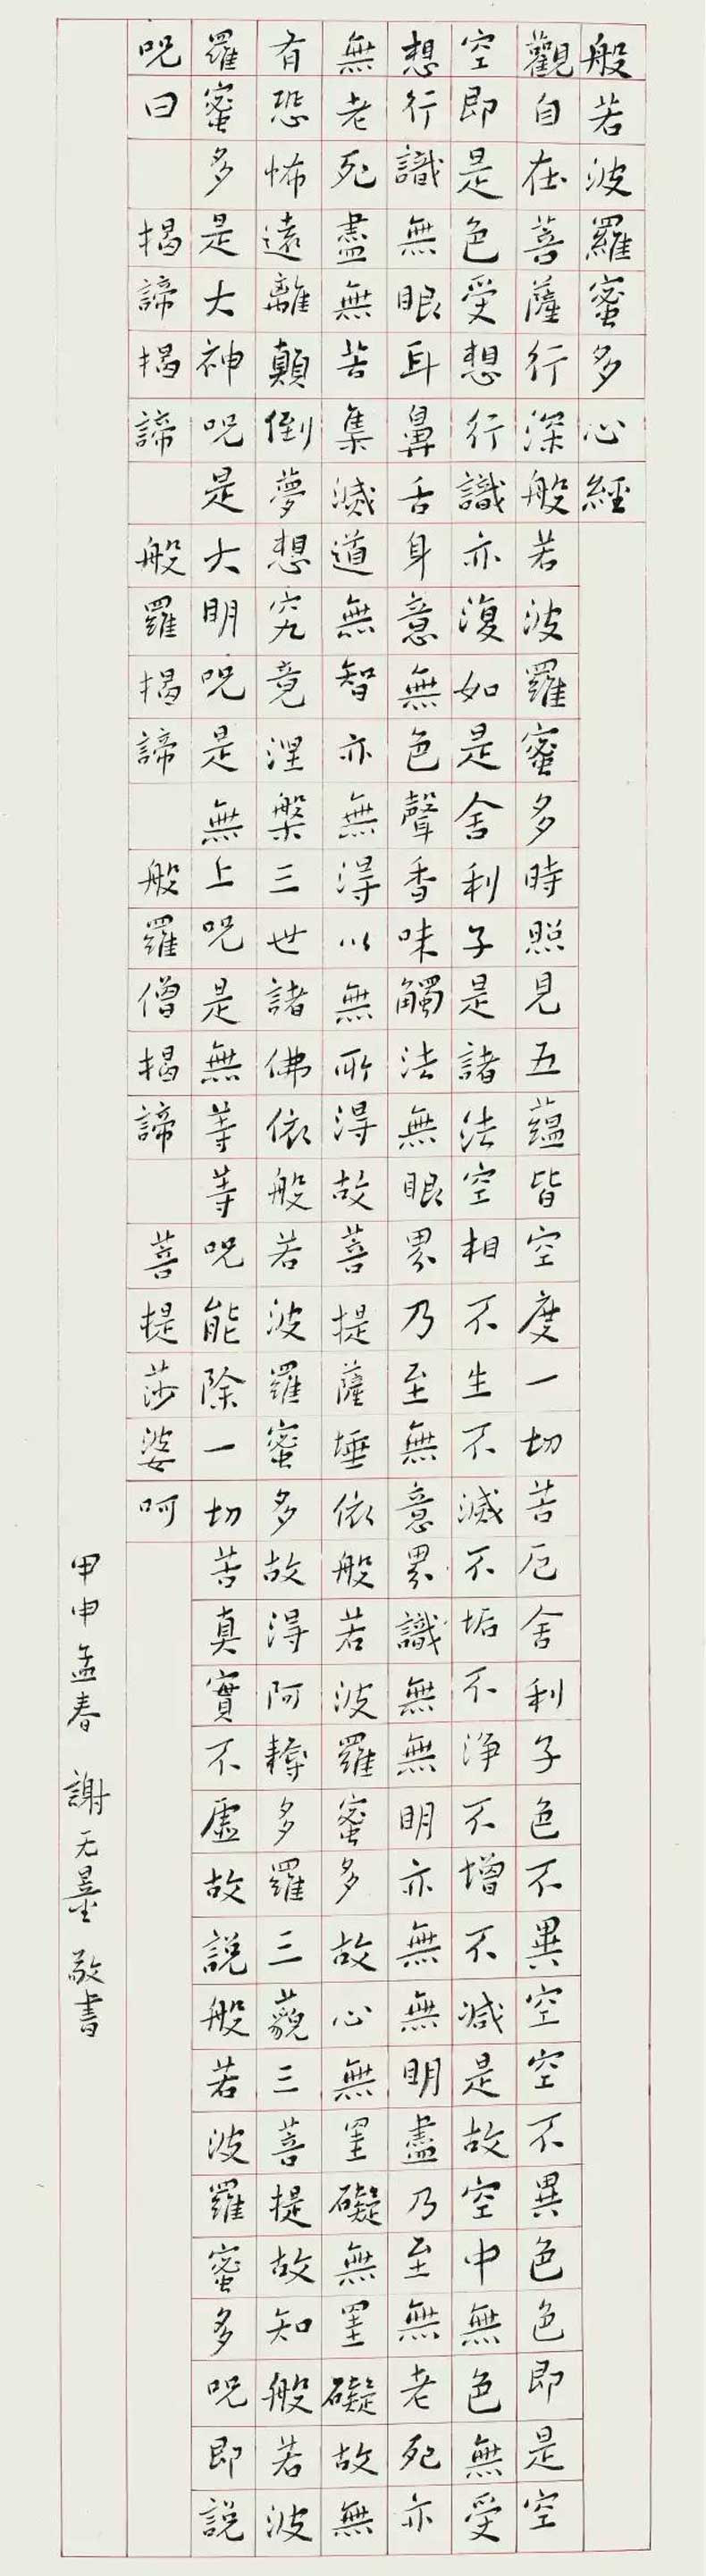 般若波羅蜜多心經
觀自在菩薩行深般若波羅蜜多時照見五蘊皆空度一切苦厄舍利子色不異空空不異色色即是空
空即是色受想行識亦復如是舍利子是諸法空相不生不滅不垢不淨不增不減是故空中無色無受
想行識無眼耳鼻舌身意無色聲香味觸法無眼界乃至無意界識無無明亦無無明盡乃至無老死亦
無老死盡無苦集滅道無智亦無得以無所得故菩提薩埵依般若波羅蜜多故心無罣礙無罣礙故無
有恐怖遠離顛倒夢想究竟涅槃三世諸佛依般若波羅蜜多故得阿耨多羅三藐三菩提故知般若波
羅蜜多是大神呪是大明呪是無上呪是無等等呪能除一切苦真實不虛故說般若波羅蜜多呪即說
呪曰 揭諦揭諦 般羅揭諦 般羅僧揭諦 菩提莎婆呵
甲申孟春 謝无量 敬書